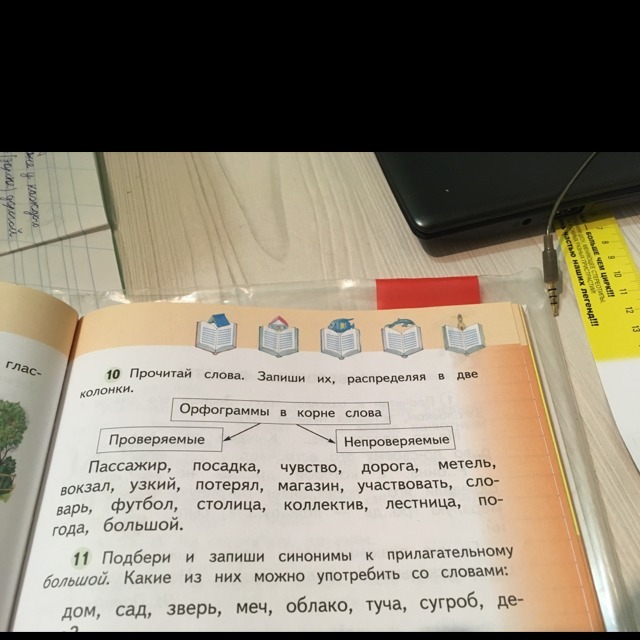 глас-
10 Прочитай слова. Запиши их, распределяя в две
колонки.
Орфограммы в корне слова
Проверяемые
Непроверяемые
Пассажир, посадка, чувство, дорога, метель,
вокзал, узкий, потерял, магазин, участвовать, сло-
варь, футбол, столица, коллектив, лестница, по-
года, большой.
11 Подбери и запиши синонимы к прилагательному
большой. Какие из них можно употребить со словами:
дом, сад, зверь, меч, облако, туча, сугроб, де-
БОЛЬШЕ ЧЕМ ЦИРК!!!
частью наших легенд!!!
7 8 9 10 11 12 13